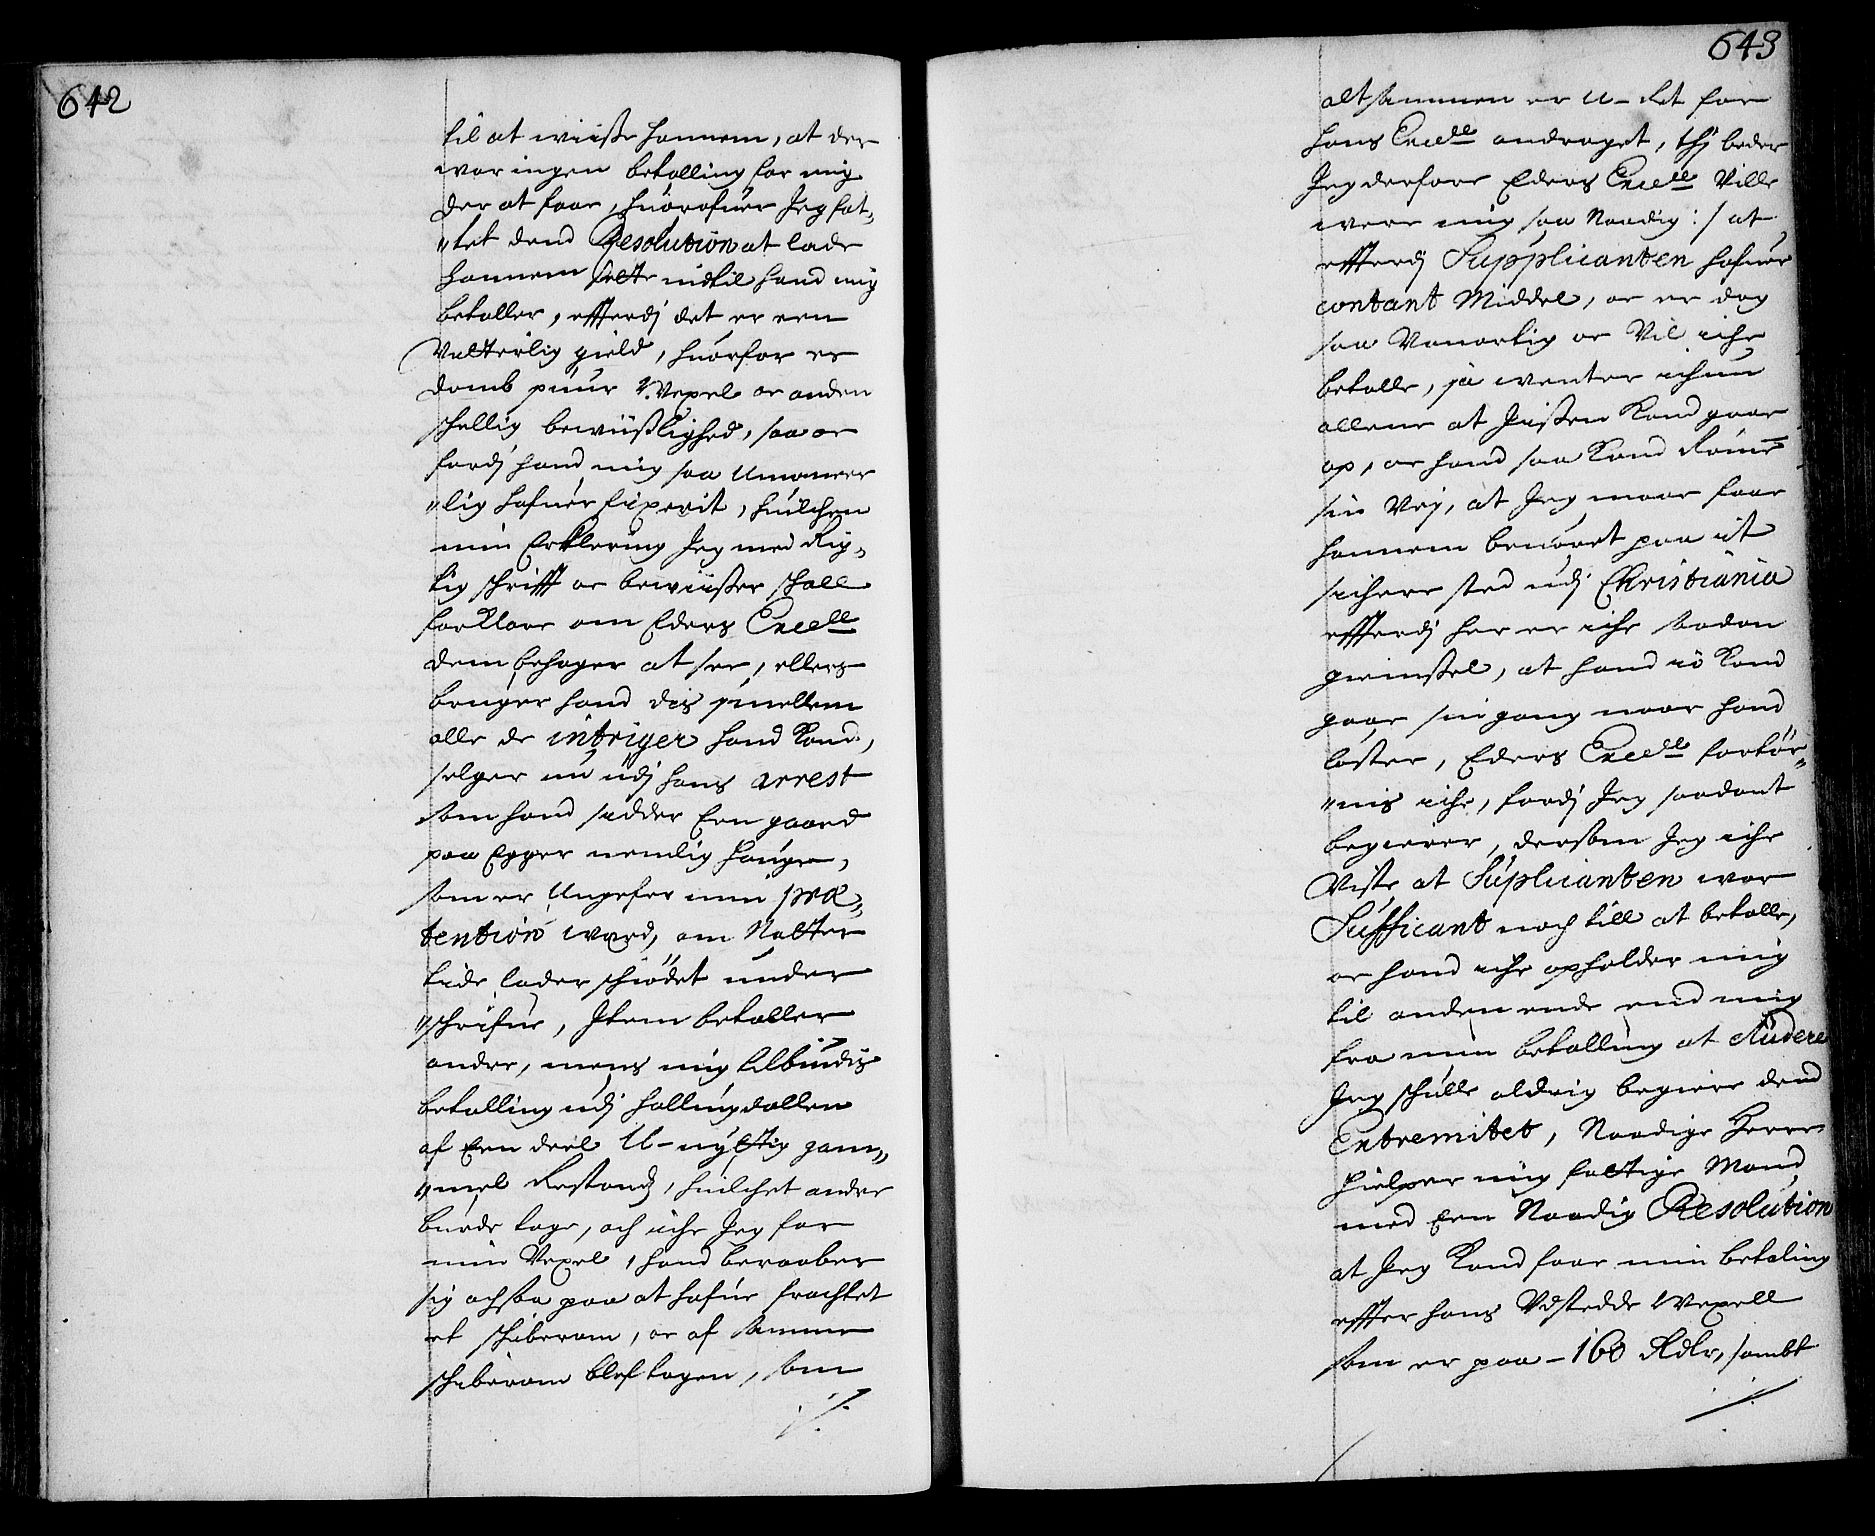 642
til at wiisse hannem, at der
war ingen betalling for mig
der at faae, huorofuer Jeg fat„
„tet dend Resolution at lade
hannem sette indtil hand mig
betaller, effterdj det er een
Vitterlig gield, huorfor er
domb puur Wexel oc anden
schellig bewiisslighed, saa oc
fordj hand mig saa Umaneer
„lig hafuer Experit, huilchen
min Erklering Jeg med Rig„
tig schrifft oc bewiisser schall
forklare om Eders Excell
dem behager at see, ellers
bruger hand dis jmellem
alle de intriger hand kand,
selger nu udj hans arrest
som hand sidder Een gaard
paa Egger nemlig Haugen,
som er Ungefer min præ„
tention werd, om Natter
tide lader schiödet under
„schrifue, Jtem betaller
andre, mens mig tilbiudis
betalling udj Hallingdallen
af Een deel U-nyttig gam„
„mel Restandz, huilchet andre
burde tage, och iche Jeg for
min Vexel, hand beraaber
sig ochsaa paa at hafue frachtet
et schiberom, oc af samme
schiberom blef tagen, som
./.
643
alt sammen er U-ret for
hans Excell andraget, thj beder
Jeg derfore Eders Excell Ville
were mig saa Naadig :/ at
effterdj Supplicanten hafuer
contant Middel, oc er dog
saa Vanartig oc Vil iche
betalle, ja wenter ichun
allene at Jissen kand gaae
op, oc hand saa kand Römme
sin Vej, at Jeg maae faae
hannem bewaret paa it
sichere sted udj Christiania
effterdj her er iche saadan
giemssel, at hand jo kand
gaae sin gang naar hand
löster, Eders Excell fortör„
„nis iche, fordj Jeg saadant
begierer, dersom Jeg iche
Viste at Suplicanten war
Sufficant noch till at betalle,
oc hand iche opholder mig
til anden ende end mig
fra min betalling at eludere
Jeg schulle aldrig begiere dend
Extremitet, Naadige Herre
hielper mig fattige Mand
med Een Naadig Resolution
at Jeg kand faae min betaling
effter hans Vdstedde Wexell
som er paa - 160 Rdlr, sambt
./.